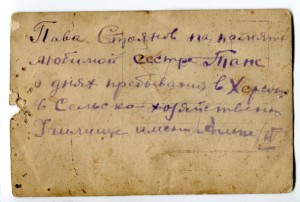 Пава Стоянов на память
любимой сестре Тане
о днях пребывания в Херсоне
в Сельско-хозяйственн
Училище имени